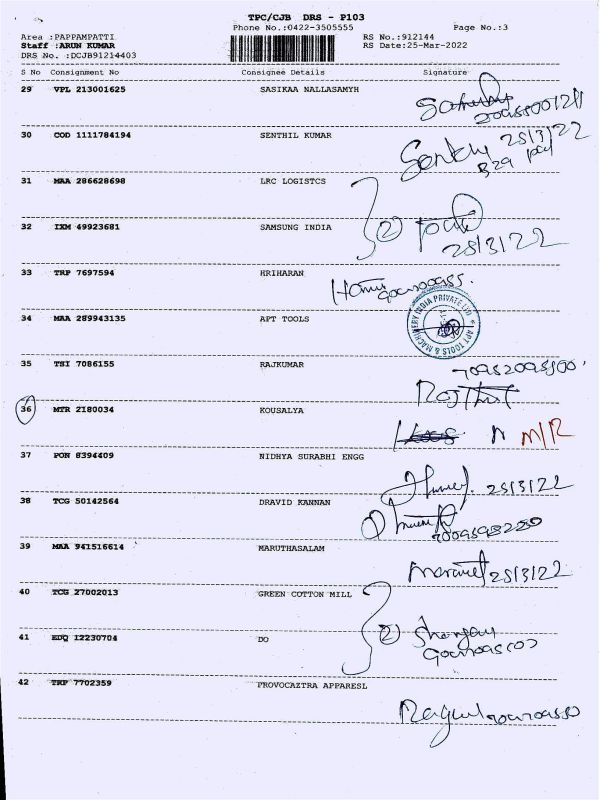 TPC/CJB DRS - P103
Phone No.:0422-3505555 Page No.:3
Area :PAPPAMPATTI RS No.:912144
Staff :ARUN KUMAR RS Date:25-Mar-2022
DRS No. :DCJB91214403
S No Consignment No Consignee Details Signature
29 VPL 213001625 SASIKAA NALLASAMYH
30 COD 1111784194 SENTHIL KUMAR 25/3/22
31 MAA 286628698 LRC LOGISTCS
32 IXM 49923681 SAMSUNG INDIA 2
25/3/22
33 TRP 7697594 HRIHARAN
34 MAA 289943135 APT TOOLS
APT TOOLS & MACHINERY INDIA PRIVATE LTD
35 TSI 7086155 RAJKUMAR
36 MTR 2180034 KOUSALYA
M/R
37 PON 8394409 NIDHYA SURABHI ENGG
25/3/22
38 TCG 50142564 DRAVID KANNAN
39 MAA 941516614 MARUTHASALAM
25/3/22
40 TCG 27002013 GREEN COTTON MILL
41 EDQ 12230704 DO 2
42 TRP 7702359 PROVOCAZTRA APPARESL